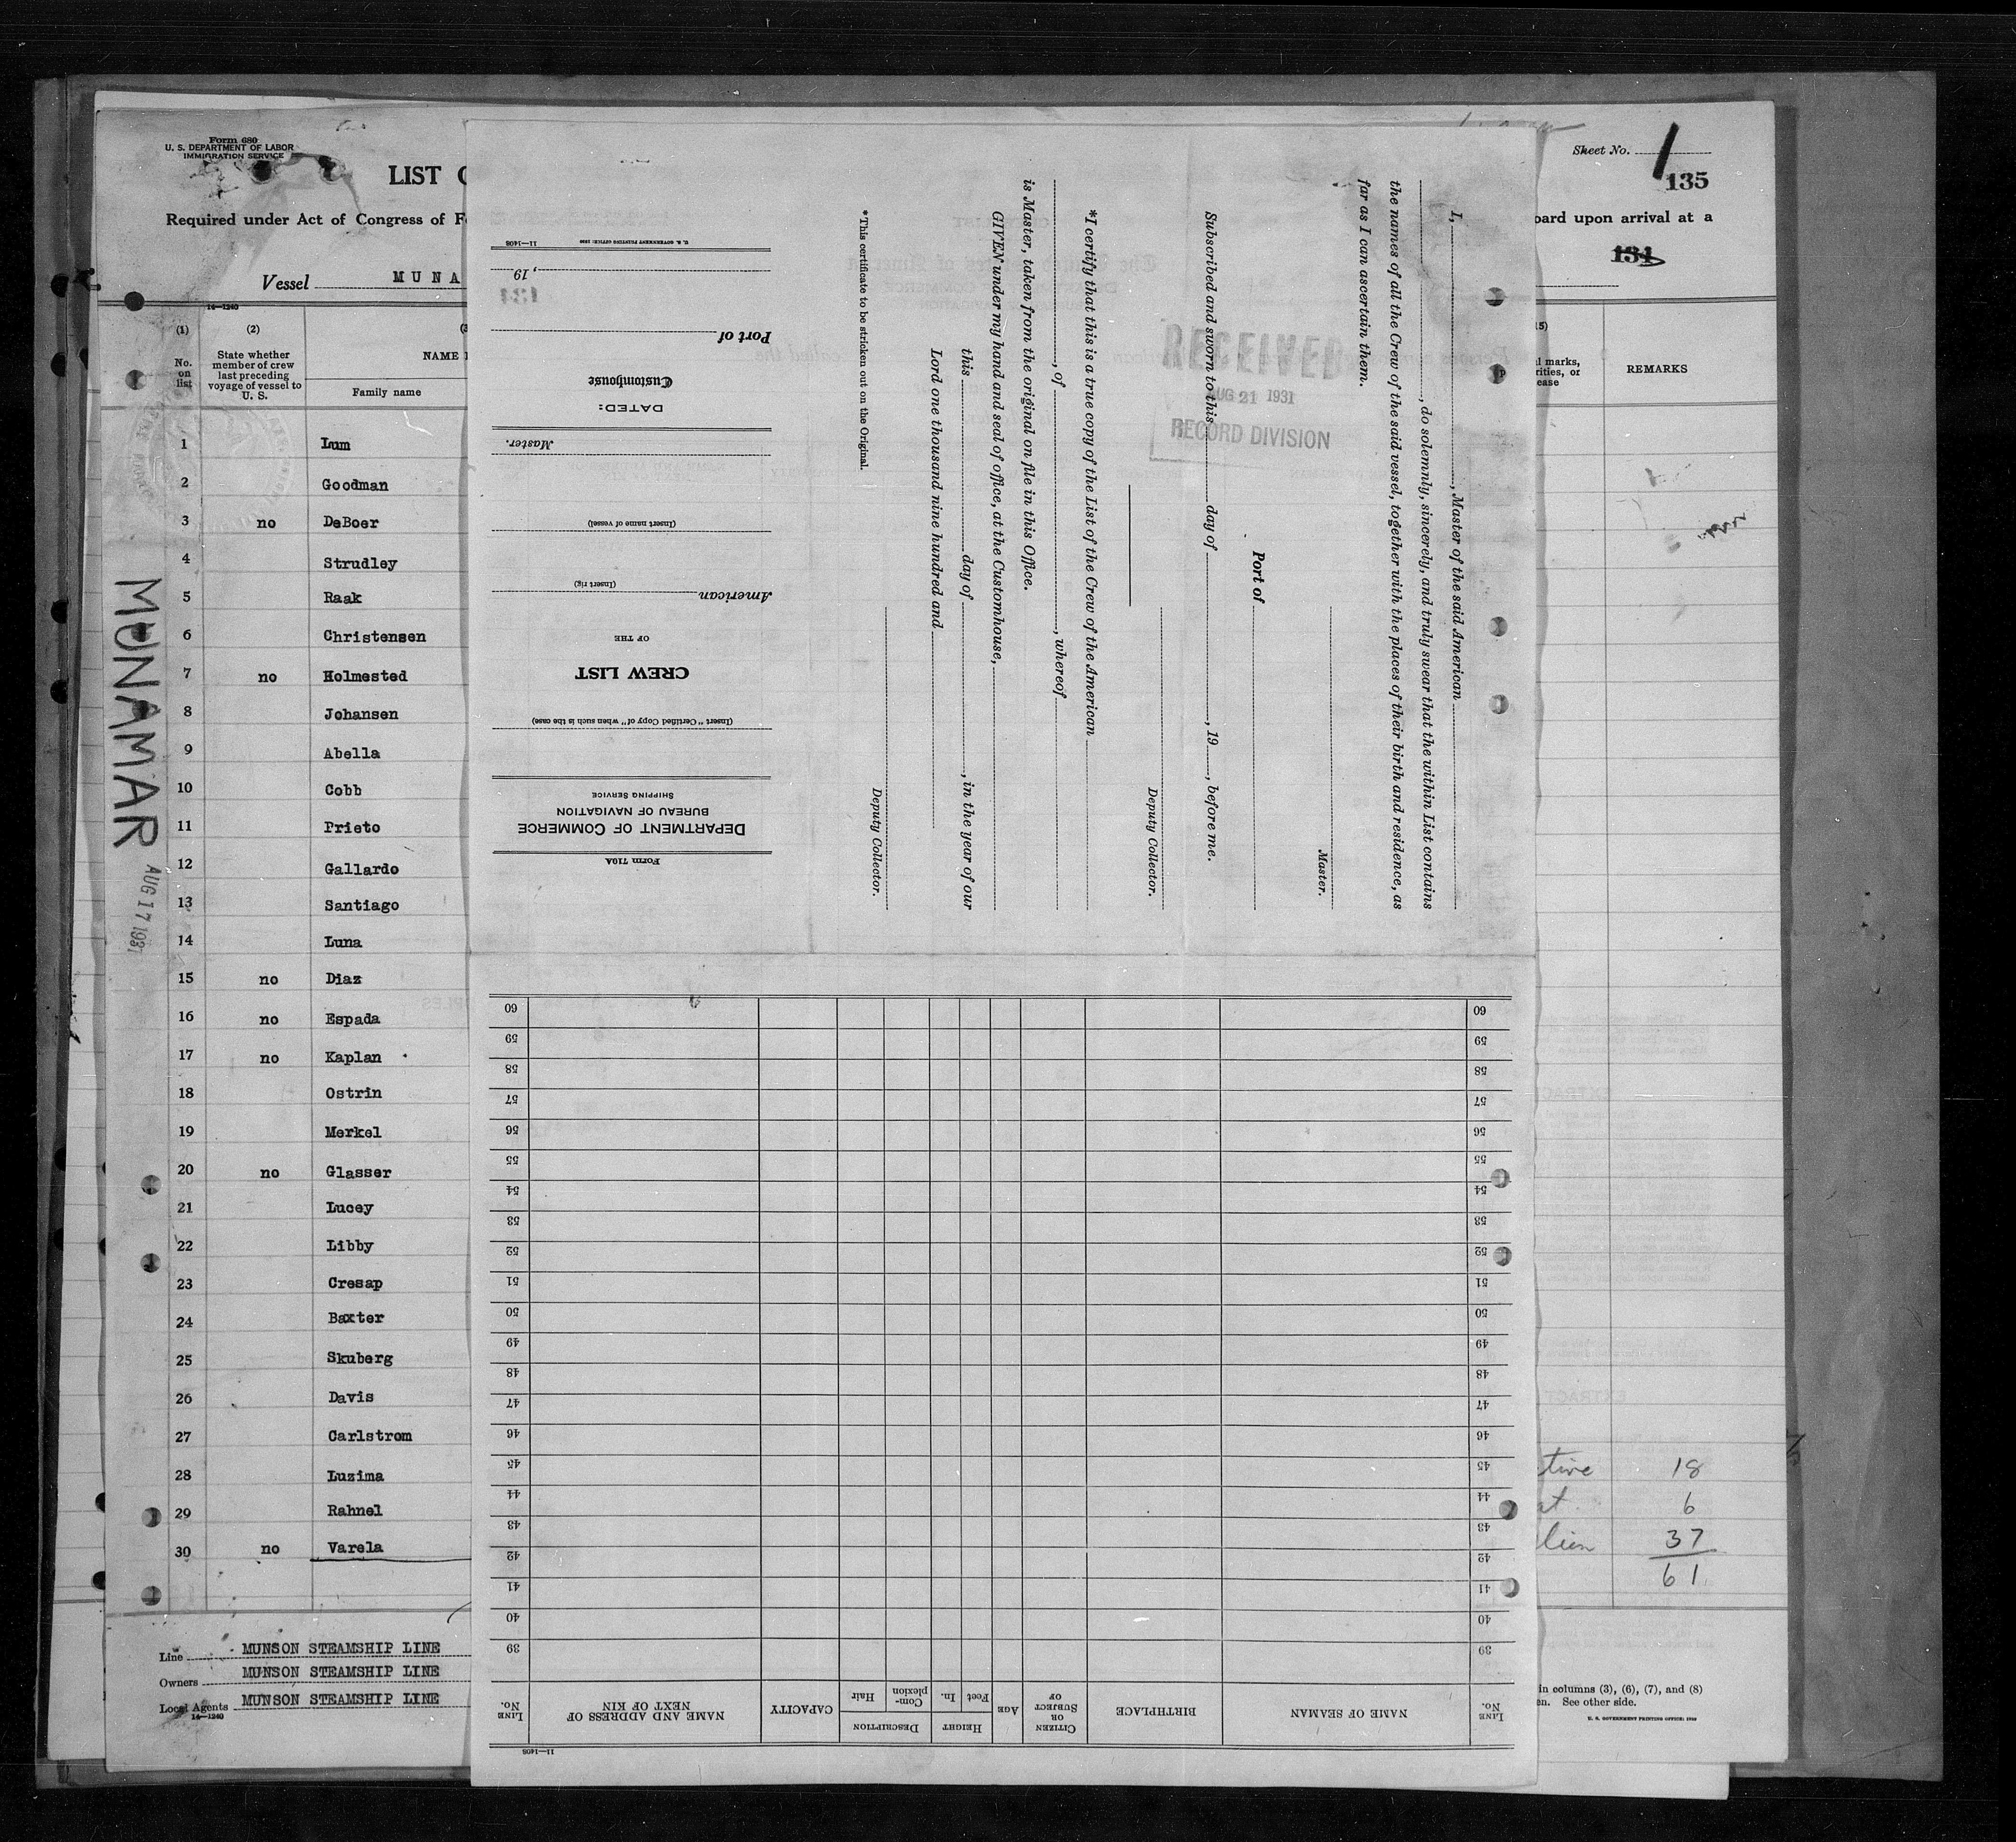 Form 680
U. S. DEPARTMENT OF LABOR
IMMIGRATION SERVICE
LIST
Required under Act of Congress of
Vessel MUNA
14—1240
(1) (2)
No. on list
State whether member of crew last preceding voyage of vessel to U. S.
NAME
Family name
1 Lum
2 Goodman
3 no DeBoer
4 Strudley
5 Raak
6 Christensen
7 no Holmested
8 Johansen
9 Abella
10 Cobb
11 Prieto
12 Gallardo
13 Santiago
14 Luna
15 no Diaz
16 no Espada
17 no Kaplan
18 Ostrin
19 Merkel
20 no Glasser
21 Lucey
22 Libby
23 Cresap
24 Baxter
25 Skuberg
26 Davis
27 Carlstrom
28 Luzima
29 Rahnel
30 no Varela
MUNAMAR
AUG 17 1931
Line MUNSON STEAMSHIP LINE
Owners MUNSON STEAMSHIP LINE
Local Agents MUNSON STEAMSHIP LINE
14—1240
Form 710A
DEPARTMENT OF COMMERCE
BUREAU OF NAVIGATION
SHIPPING SERVICE
(Insert "Certified Copy of" when such is the case)
CREW LIST
OF THE
American
(Insert rig)
(Insert name of vessel)
Master.
DATED:
Customhouse
Port of
, 19
11—1408
U. S. GOVERNMENT PRINTING OFFICE: 1930
I, , Master of the said American
, do solemnly, sincerely, and truly swear that the within List contains
the names of all the Crew of the said vessel, together with the places of their birth and residence, as
far as I can ascertain them.
Master.
Port of
Subscribed and sworn to this day of , 19 , before me.
Deputy Collector.
*I certify that this is a true copy of the List of the Crew of the American
, of , whereof
is Master, taken from the original on file in this Office.
GIVEN under my hand and seal of office, at the Customhouse,
this day of , in the year of our
Lord one thousand nine hundred and
Deputy Collector.
*This certificate to be stricken out on the Original.
RECEIVED
AUG 21 1931
RECORD DIVISION
LINE No.
NAME OF SEAMAN
BIRTHPLACE
CITIZEN OR SUBJECT OF
AGE
HEIGHT
Feet In.
DESCRIPTION
Complexion Hair
CAPACITY
NAME AND ADDRESS OF NEXT OF KIN
LINE No.
39 39
40 40
41 41
42 42
43 43
44 44
45 45
46 46
47 47
48 48
49 49
50 50
51 51
52 52
53 53
54 54
55 55
56 56
57 57
58 58
59 59
60 60
11—1408
Sheet No. 1
135
oard upon arrival at a
131
REMARKS
l marks,
rities, or
ease
tive 18
at 6
lien 37
61
in columns (3), (6), (7), and (8)
en. See other side.